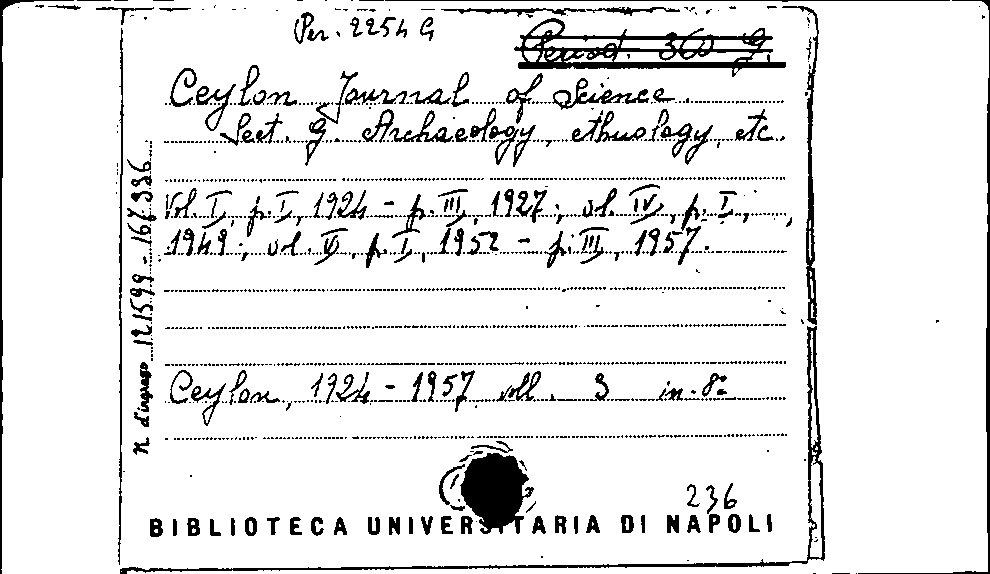 Per. 2254 G
Period. 360 G.
Ceylon Journal of Science.
Sect. G. Archaeology, ethnology, etc.
Vol. I, p. I, 1924 - p. III, 1927; vol. IV, p. I,
1949; vol. V, p. I, 1952 - p. III, 1957.
N. d'ingresso 121599 - 167936
Ceylon, 1924 - 1957 voll. 3 in-8°
236
BIBLIOTECA UNIVERSITARIA DI NAPOLI